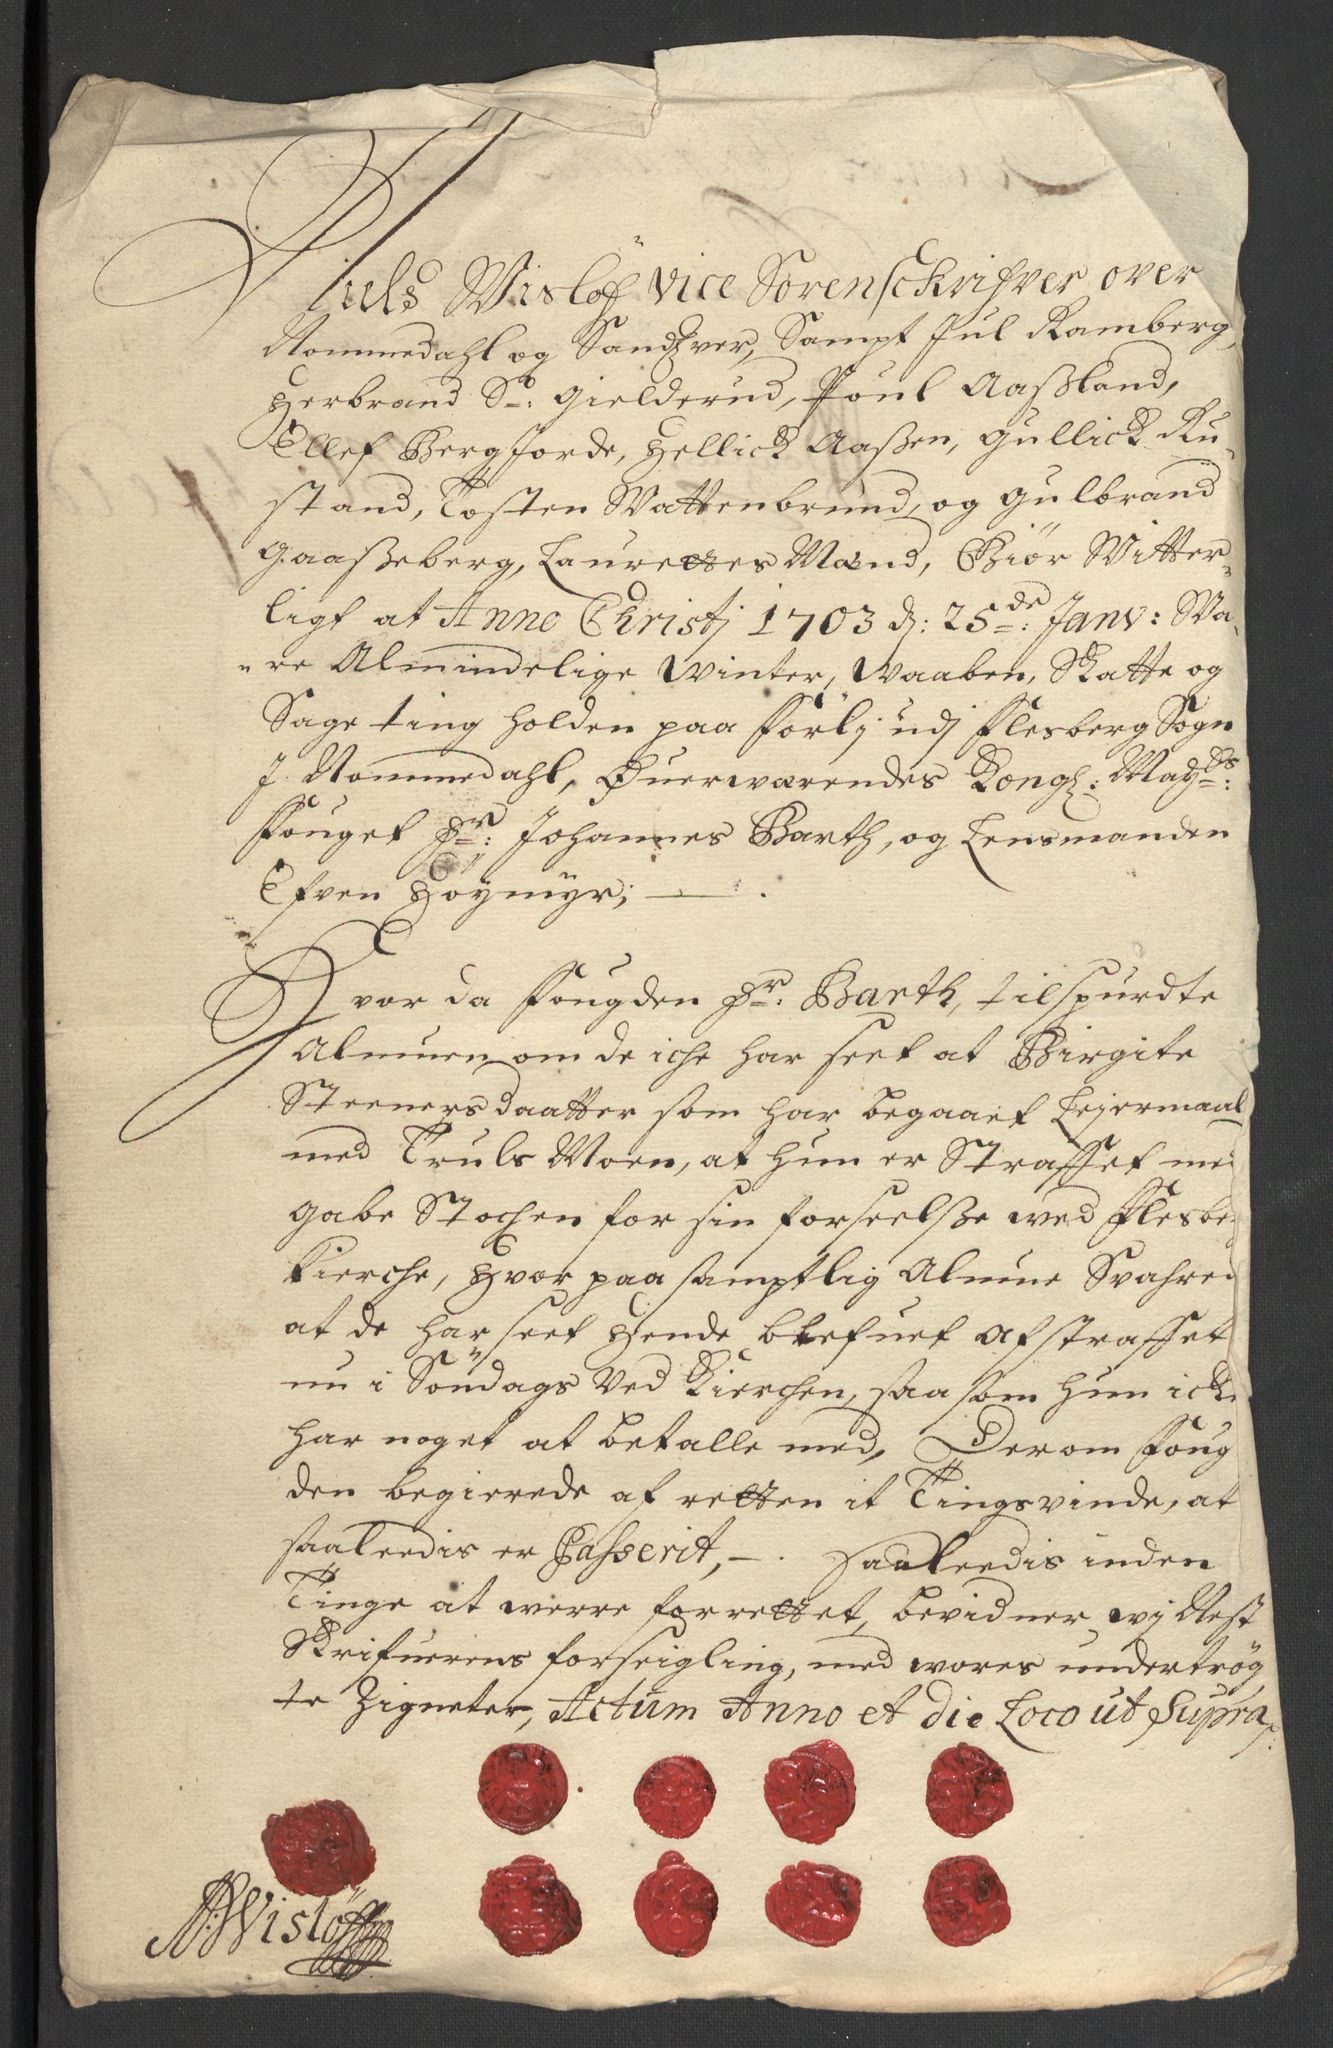 Niels Wisløf vice Sorenschrifver over
Nommedahl og Sandzver, Sampt Jul Ramberg,
Herbrand S: Gielderud, Poul Aaßland,
Ellef Bergjorde, Hellick Aaßen, Gullick Ru-
stand, Tosten Wattenbrund, og Gulbrand
Gaaßeberg, Laurettes Mænd, Giør Witter-
ligt at Anno Christj 1703 d: 25de: Janv: Wa-
re Almindelige Winter, Waaben, Skatte og
Sage ting holden paa Førlj udj Flesberg Sogn
J Nommedahl, Ofuerwærendes Kongl: Mayds:
Fouget Hr: Johannes Barth, og Lensmanden
Efven Høymyr;
Hvor da Fougden Hr: Barth, tilspurdte
Almuen om de iche har seet at Birgite
Steenersdaatter som har begaaet Leiermaal
med Truls Moen, at hun er Straffet med
Gabe Stochen for sin forseelße wed Flesber
Kierche, Hvor paa samptlig Almue Svahred
at de har seet Hende blefuet Afstraffet
nu i Søndags Ved Kierchen, saa som hun icke
har noget at betalle med, Derom Foug
den begierede af retten it Tingsvinde, at
saaleedis er Passerit, Saaleedis inden
Tinge at werre forrettet, bevidner wj Nest
Skrifuerens forseigling, med wores undertrøg
te Zigneter, Actum Anno et die Loco ut Supra
N: Wisløff